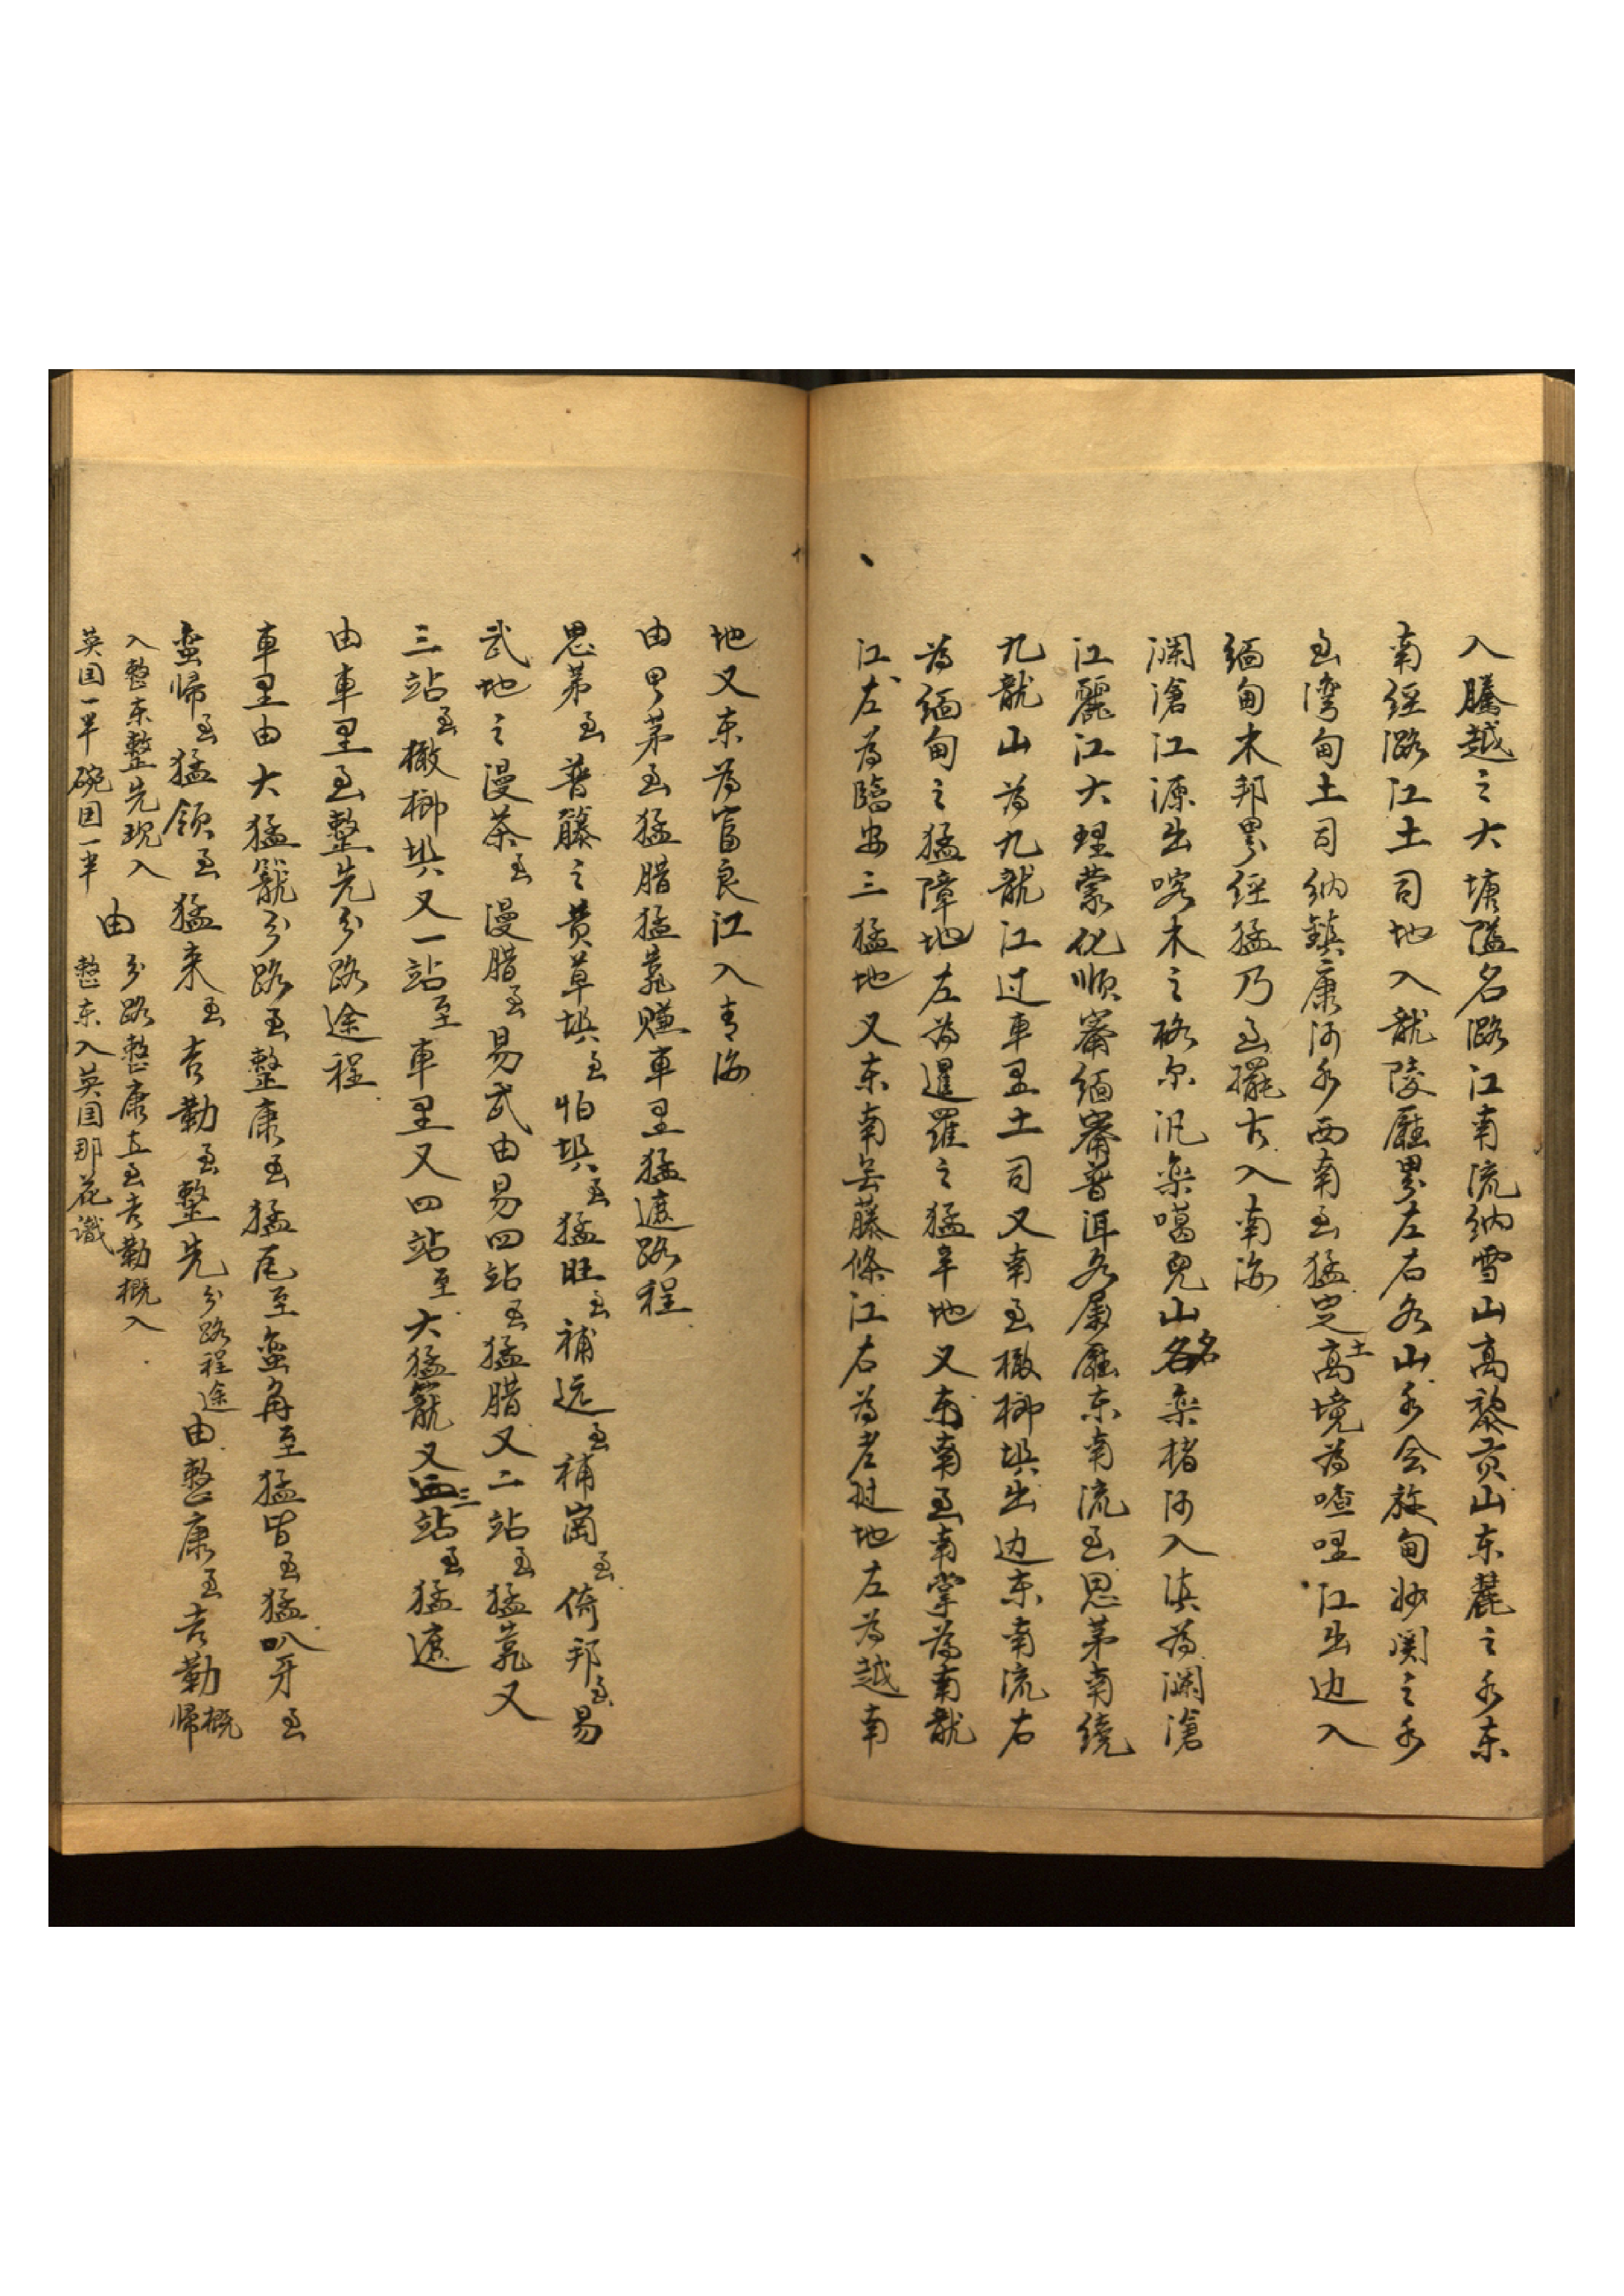 入騰越之大塘隘名潞江南流納雪山高黎貢山东麓之水东
南經潞江土司地入龍陵廳界左右各山水会放甸妙関之水
至湾甸土司納鎮康河水西南至猛定土高境為喳哩江出边入
缅甸木邦界經猛乃至擺古入南海
澜滄江源出喀木之格尔汎枭噶兒山名枭楮河入滇為澜滄
江麗江大理蒙化順寧缅寧普洱各属廳东南流至思茅南繞
九龍山為九龍江过車里土司又南至橄榔垻出边东南流右
為缅甸之猛障地左為暹羅之猛辛地又东南至南掌為南龍
江左為臨安三猛地又东南会藤條江右為老挝地左為越南
地又东為富良江入青海
由思茅至猛腊猛竜赕車里猛遮路程
思茅至普籐之黄草垻至怕垻至猛旺至補远至補崗至倚邦至易
武地之漫茶至漫腊至易武由易四站至猛腊又二站至猛竜又
三站至橄榔垻又一站至車里又四站至大猛籠又三站至猛遮
由車里至整先分路途程
車里由大猛籠分路至整康至猛尾至蛮角至猛皆至猛叭牙至
蛮歸至猛领至猛来至吉勒至整先分路程途由整康至吉勒概歸
入整东整先现入 由 分路整康五至吉勒概入
英国一半碗国一半 整东入英国那花識